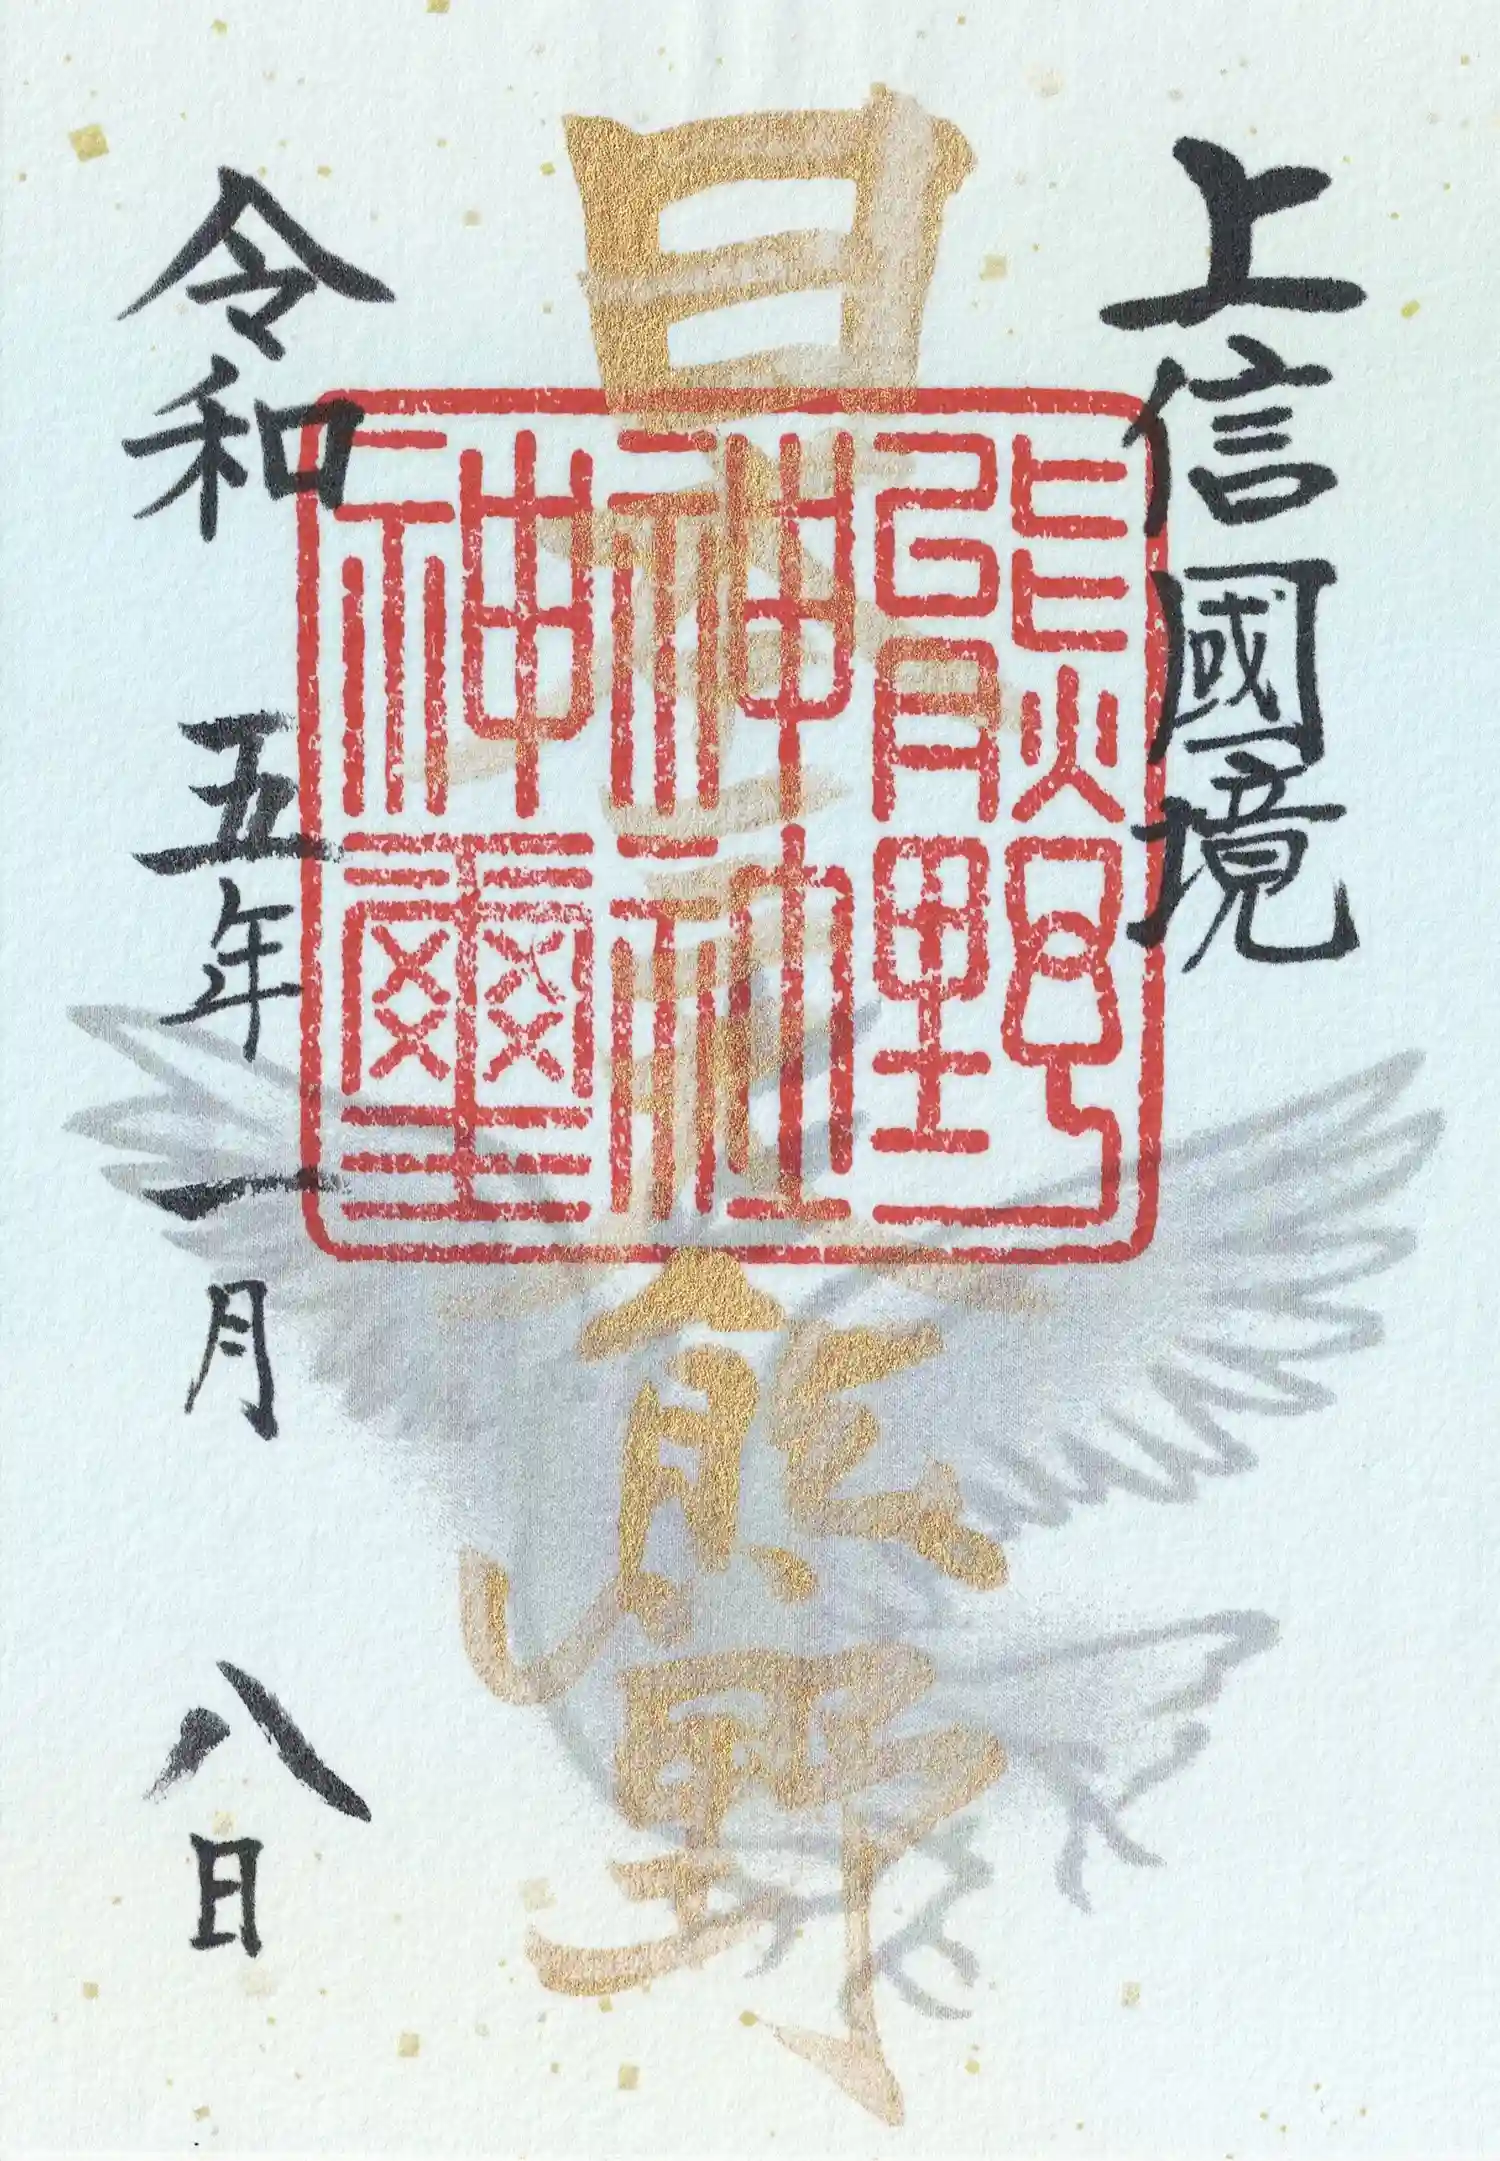 上信國境
日本三大熊野
熊野
神社
神璽
令和五年一月八日